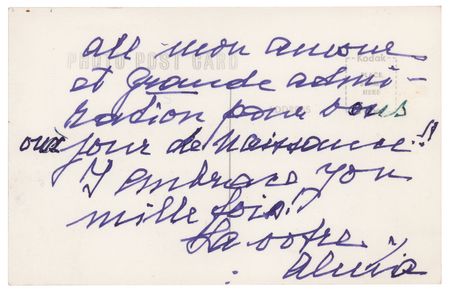 all mon amour
et grande admi-
ration pour vous
our jour de naissance!!
I embrace you
mille fois!
La votre
PHOTO POST CARD
Kodak
PLACE
HERE
ADDRESS